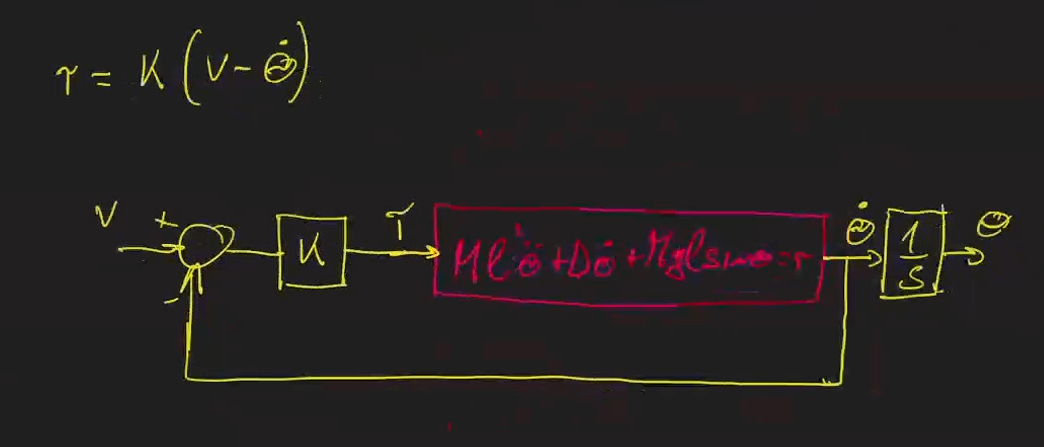 τ = K (V - θ̇)
V + K τ Ml²θ̈ + Dθ̇ + Mgl sin θ = τ θ̇ 1/s θ
-